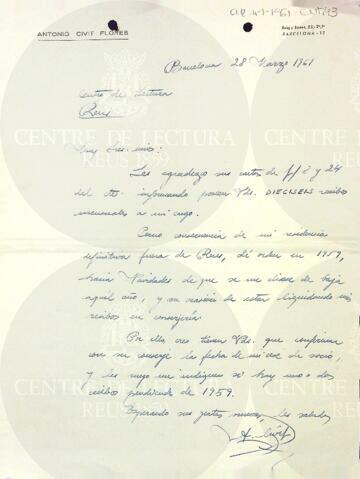 CLR 14-1-1961
ANTONIO CIVIT FLORES
BARCELONA - 12
Barcelona 28 Marzo 1961
Centro de Lectura
Reus
Muy Sres. mios:
Les agradezco sus cartas de f/ 2 y 24
del cte. informando poseen Vds. DIECISEIS recibos
mensuales a mi cargo.
Como consecuencia de mi residencia
definitiva fuera de Reus, dí orden en 1959,
hacia Navidades de que se me diese de baja
aquel año, y en ocasión de estar liquidando mis
recibos en conserjería.
Por ello creo tienen Vds. que confirmar
con su conserje la fecha de mi cese de socio,
y les ruego me indiquen si hay uno o dos
recibos pendientes de 1959.
Esperando sus gratas nuevas, les saluda
A. Civit
CENTRE DE LECTURA
REUS 1859
CENTRE DE LECTURA
REUS 1859